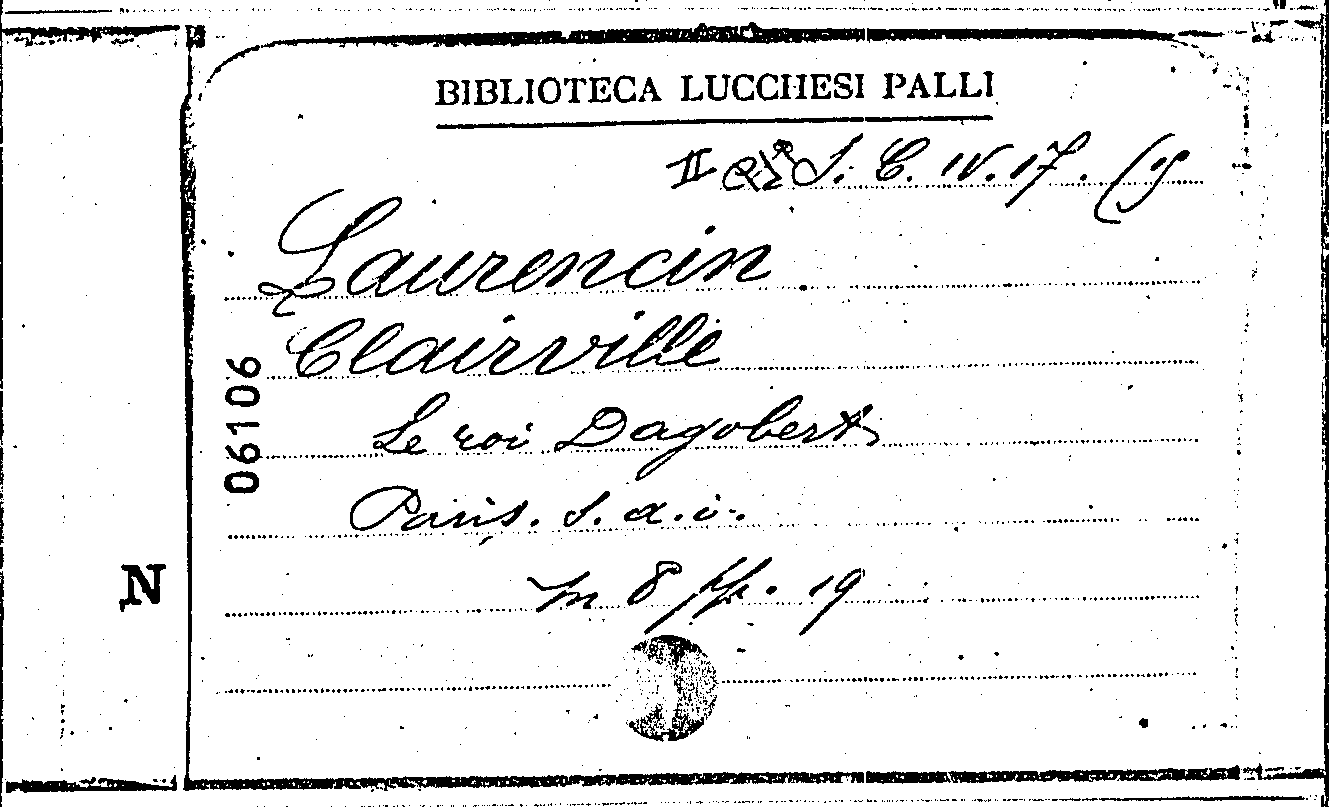 BIBLIOTECA LUCCHESI PALLI
II S. C. IV. 17. (19
Laurencin
Clairville
Le roi Dagobert
Paris. s. a. i.
in 8 pp. 19
06106
N